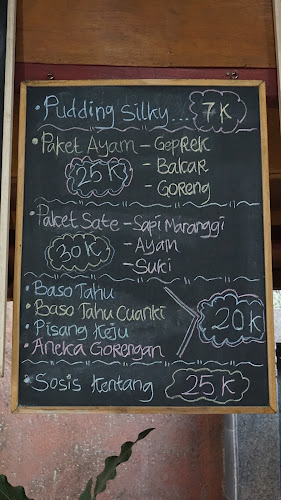 • Pudding Silky... 7K
• Paket Ayam - Geprek
25K - Bakar
- Goreng
• Paket Sate - Sapi Maranggi
30K - Ayam
- Suki
• Baso Tahu
• Baso Tahu Cuanki
20K
• Pisang Keju
• Aneka Gorengan
• Sosis Kentang 25K